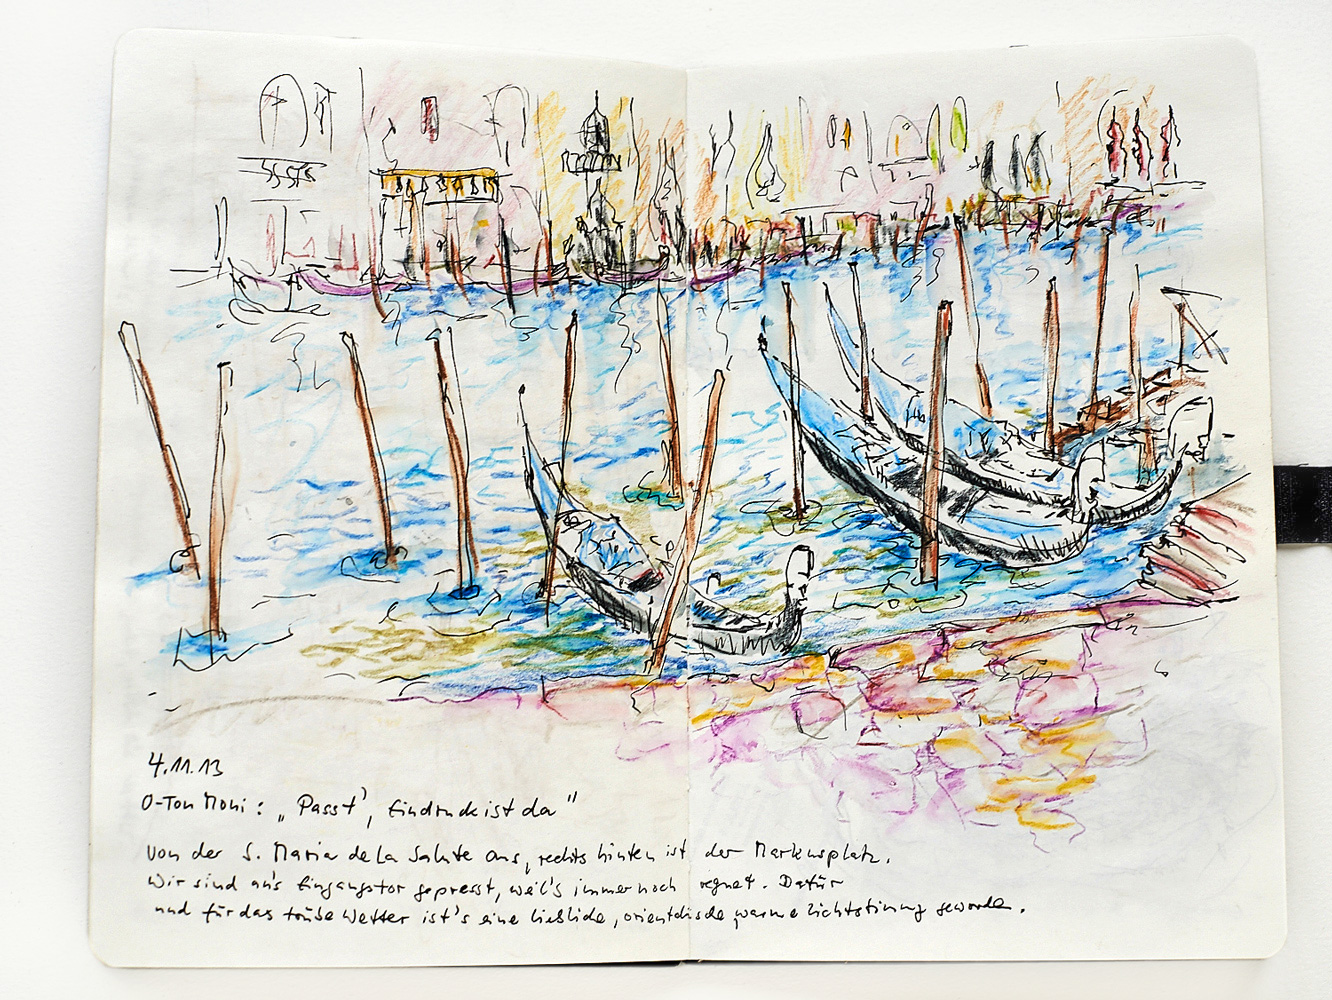 4.11.13
O-Ton Moni: „Passt', Eindruck ist da"
Von der S. Maria de La Salute aus, rechts hinten ist der Markusplatz.
Wir sind an's Eingangstor gepresst, weil's immer noch regnet. Dafür
und für das trübe Wetter ist's eine liebliche, orientalische, warme Lichtstimmung geworden.